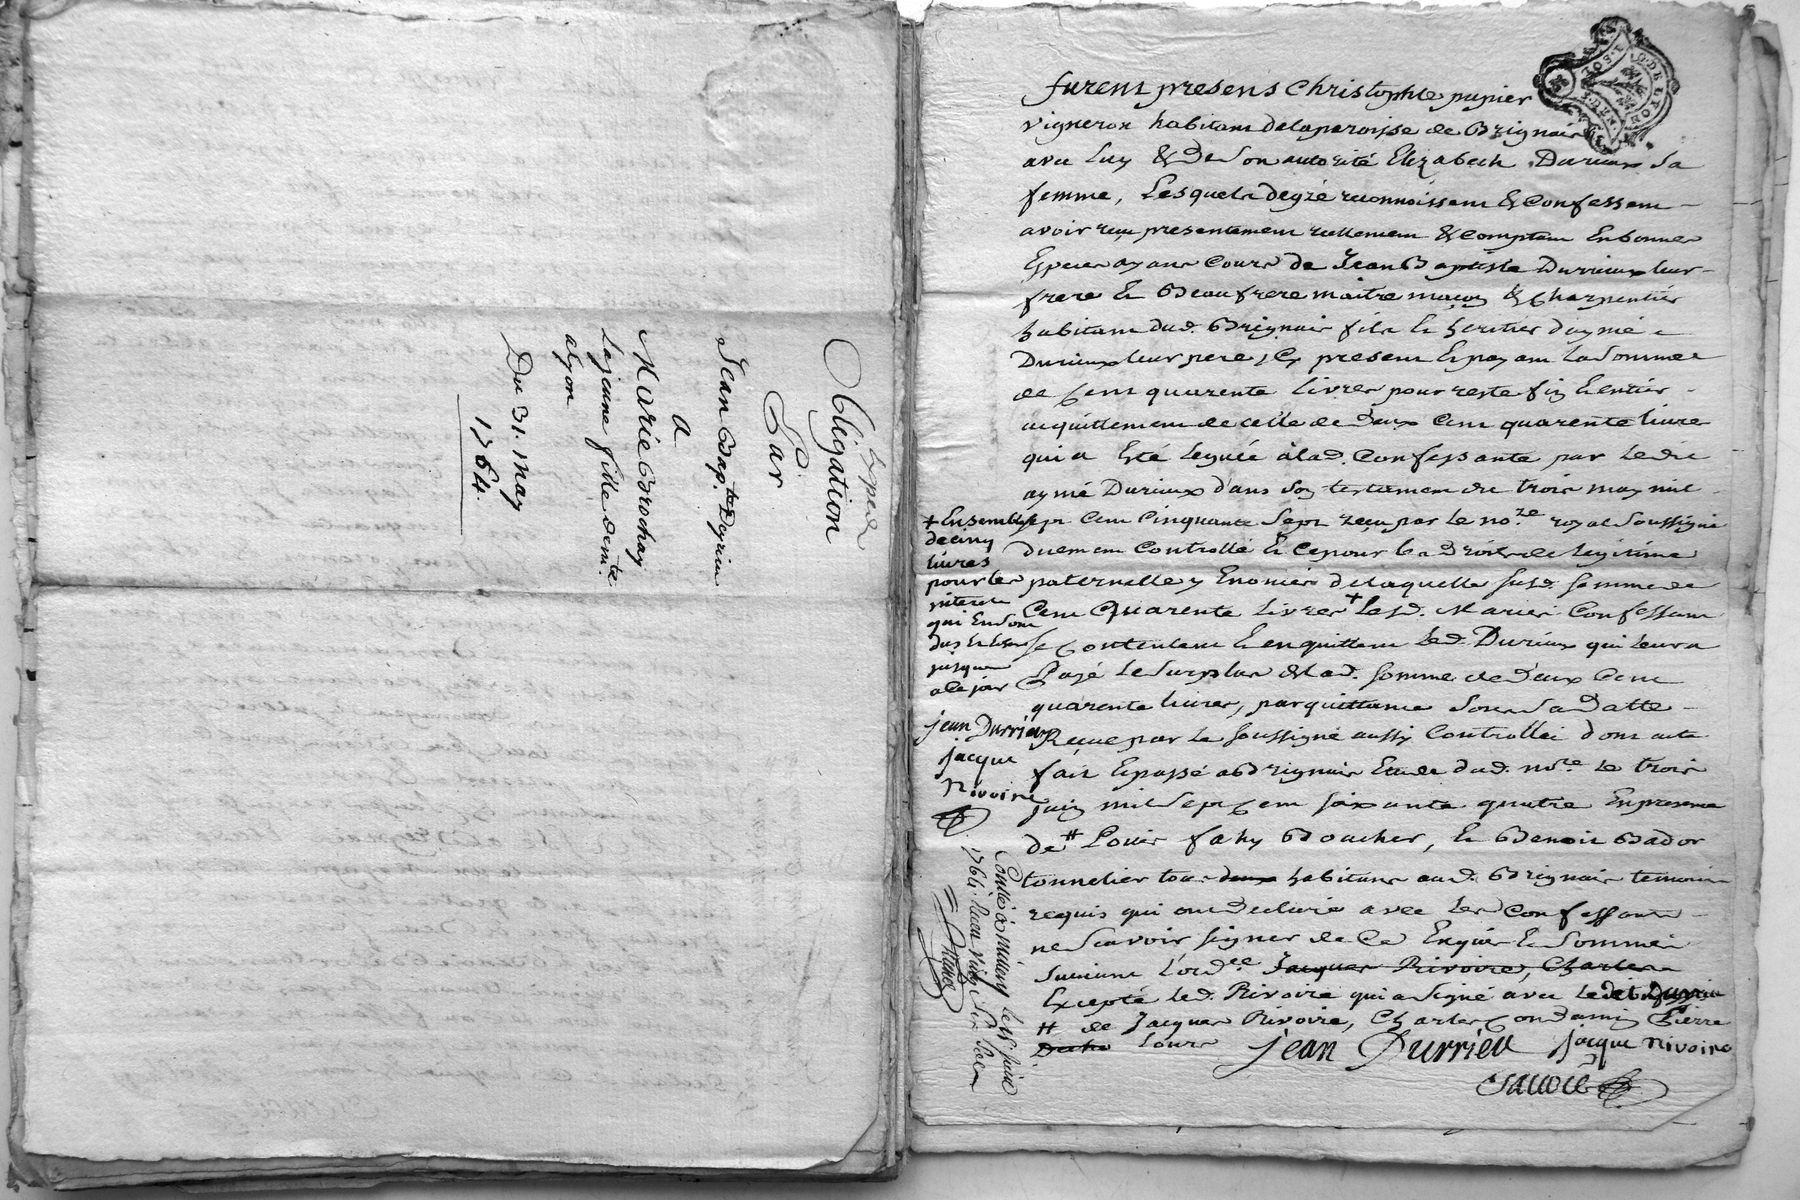 Exped
Obligation
Par
Jean Bap.te Deyrieu
a
Marie Brochay
La jeune fille demte.
a Lyon
Du 31. may
1764.
furent presens Christophle papier
vigneron habitant de la paroisse de Brignais
avec Luy & de son autorité Elizabeth Durieux sa
femme, Lesquels de gré reconnoissent & Confessent
avoir reçu presentement reellement & comptant En bonnes
Especes ayant cours de Jean Baptiste Durrieux leur
frere & Beaufrere maitre maçon & Charpentier
habitant dud. Brignais fils & heritier d'aymé
Durieux leur pere, Cy present & payant La somme
de Cent quarente Livres pour reste fin & entier
acquittement de celle de deux Cent quarente livres
qui a Eté Leguée à lad. Confessante par Ledit
aymé Durieux dans son testament du trois may mil
sept Cent Cinquante Sept reçu par Le no.re royal soussigné
duement Controllé & Ce pour les Droits de Legitime
paternelle, En outre de laquelle susd. somme de
Cent Quarente Livres + Lesd. Mariés Confessants
se Contentent & en quittent Led. Durieux qui leur a
Payé Le surplus de lad. somme de deux Cent
quarente livres, par quittance sous sa datte
Reçue par Le soussigné aussy Controllée dont acte
fait & passé a Brignais Etude dud. no.re Le trois
juin mil Sept Cent soixante quatre En presence
de # Louis fahy Boucher, & Benoit Bador
tonnelier tous deux habitans aud. Brignais temoins
requis qui ont declaré avec Les Confessants
ne sçavoir signer de Ce Enquis & sommés
suivant L'ord.ce Jacques Rivoire, Charles
Excepté Led. Rivoire qui a signé avec Led. Durrieu
# de Jacques Rivoire, Charles Condamin Pierre
Louis
jean Durrieu jacque rivoire
+ Ensemble
de cinq
livres
pour les
interets
qui En sont
dus
jusques
a Ce jour
jean Durrieu
jacque
rivoire
1764.